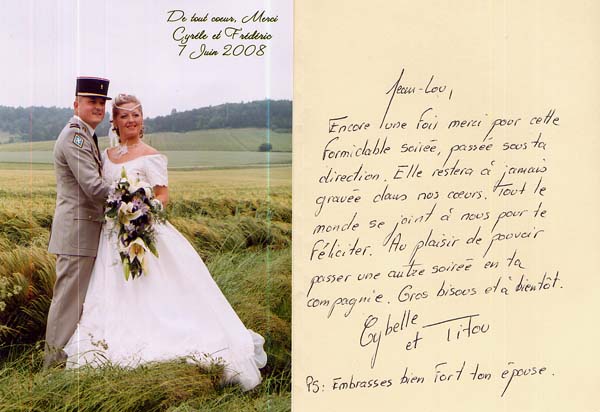 De tout coeur, Merci
Cyrèle et Frédéric
7 Juin 2008
Jean-Lou,
Encore une fois merci pour cette
formidable soirée, passée sous ta
direction. Elle restera à jamais
gravée dans nos cœurs. Tout le
monde se joint à nous pour te
féliciter. Au plaisir de pouvoir
passer une autre soirée en ta
compagnie. Gros bisous et à bientôt.
Cybelle
et Titou
PS: Embrasses bien fort ton épouse.